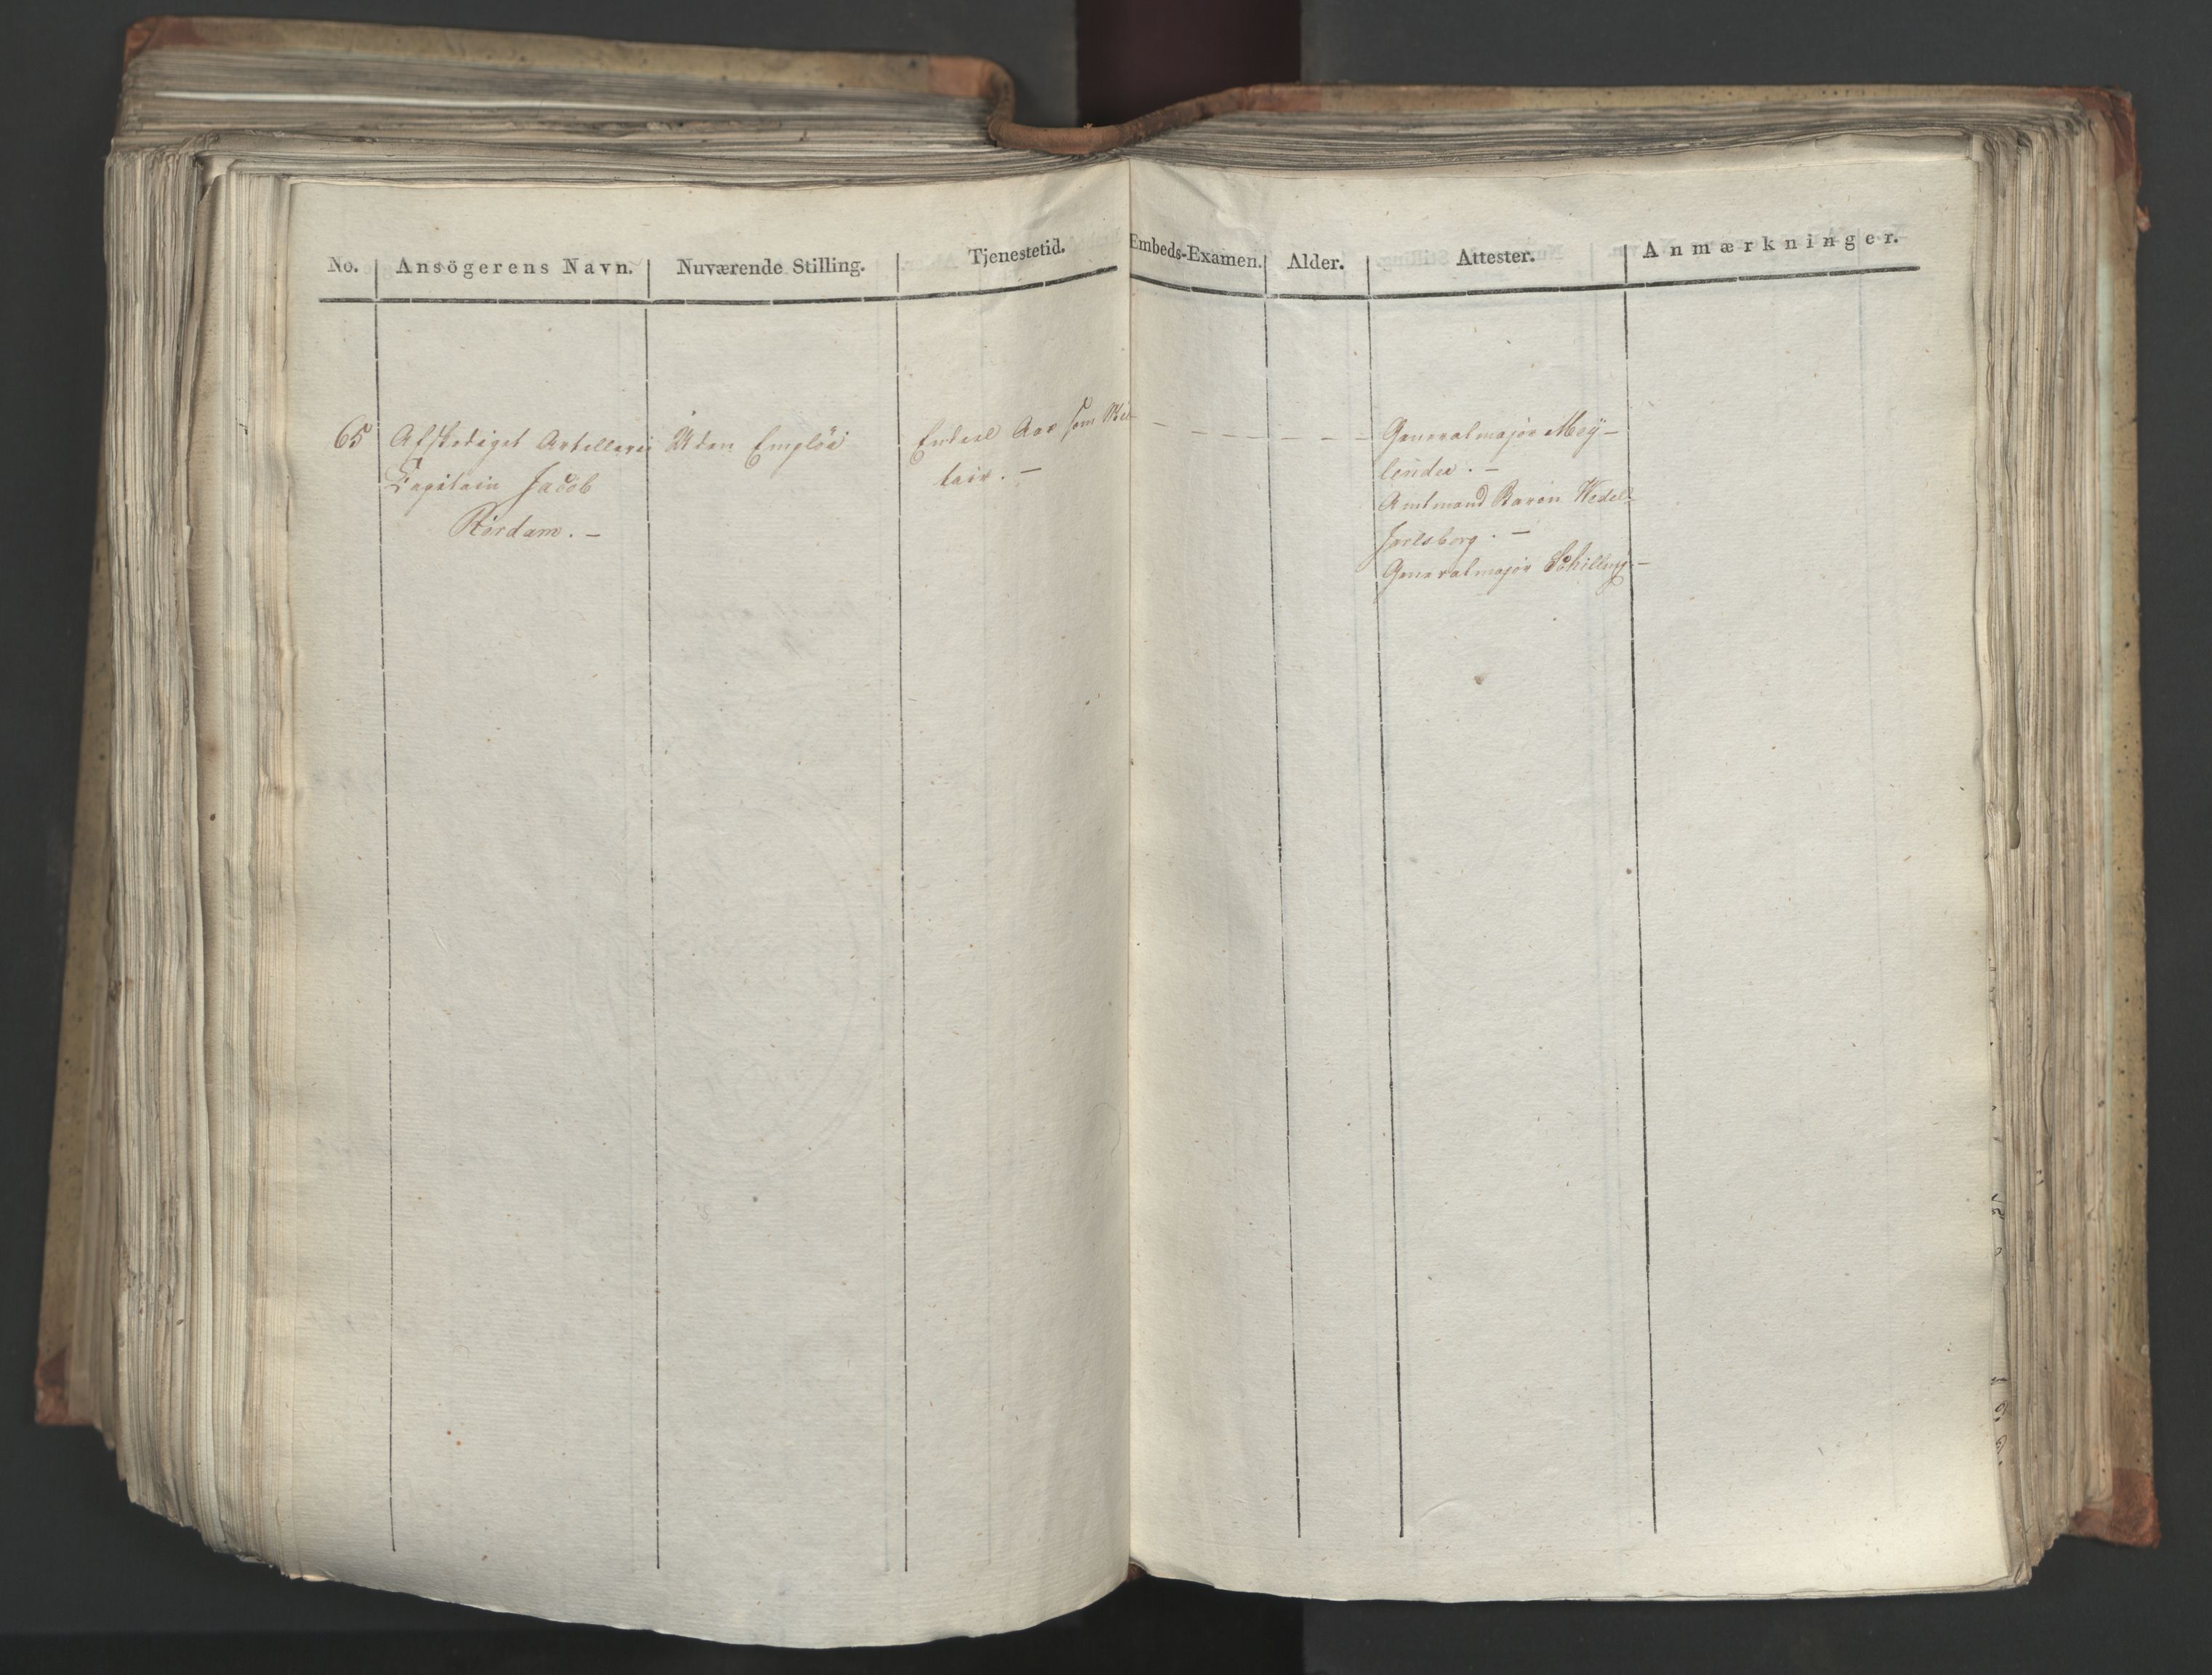 No. Ansögerens Navn. Nuværende Stilling. Tjenestetid. Embeds-Examen. Alder. Attester. Anmærkninger.
65 Afskediget Artelleri
Capitain Jacob
Rördam. —
Uden Emplöi
Endeel Aar som Mil-
tair. —
— — — — — — —
Generalmajor Mey-
lender. —
Amtmand Baron Wedel-
Jarlsborg. —
Generalmajor Schilling. —